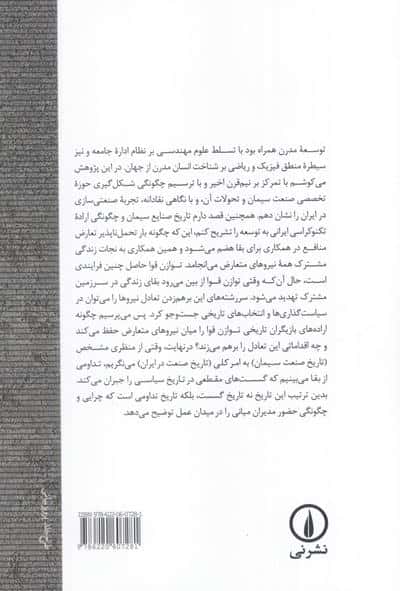 توسعهٔ مدرن همراه بود با تسلط علوم مهندسی بر نظام ادارهٔ جامعه و نیز
سیطرهٔ منطق فیزیک و ریاضی بر شناخت انسان مدرن از جهان. در این پژوهش
می‌کوشم با تمرکز بر نیم‌قرن اخیر و با ترسیم چگونگی شکل‌گیری حوزهٔ
تخصصی صنعت سیمان و تحولات آن، و با نگاهی نقادانه، تجربهٔ صنعتی‌سازی
در ایران را نشان دهم. همچنین قصد دارم تاریخ صنایع سیمان و چگونگی ارادهٔ
تکنوکراسی ایرانی به توسعه را تشریح کنم، این که چگونه بار تحمل‌ناپذیر تعارض
منافع در همکاری برای بقا هضم می‌شود و همین همکاری به نجات زندگی
مشترک همهٔ نیروهای متعارض می‌انجامد. توازن قوا حاصل چنین فرایندی
است، حال آن‌که وقتی توازن قوا از بین می‌رود بقای زندگی در سرزمین
مشترک تهدید می‌شود. سررشته‌های این برهم‌زدن تعادل نیروها را می‌توان در
سیاست‌گذاری‌ها و انتخاب‌های تاریخی جست‌وجو کرد. پس می‌پرسیم چگونه
اراده‌های بازیگران تاریخی توازن قوا را میان نیروهای متعارض حفظ می‌کند
و چه اقداماتی این تعادل را برهم می‌زند؟ درنهایت، وقتی از منظری مشخص
(تاریخ صنعت سیمان) به امر کلی (تاریخ صنعت در ایران) می‌نگریم، تداومی
از بقا می‌بینیم که گسست‌های مقطعی در تاریخ سیاسی را جبران می‌کند.
بدین ترتیب این تاریخ نه تاریخ گسست، بلکه تاریخ تداومی است که چرایی و
چگونگی حضور مدیران میانی را در میدان عمل توضیح می‌دهد.
ISBN: 978-622-06-0728-1
9 786220 607281
نشر نی